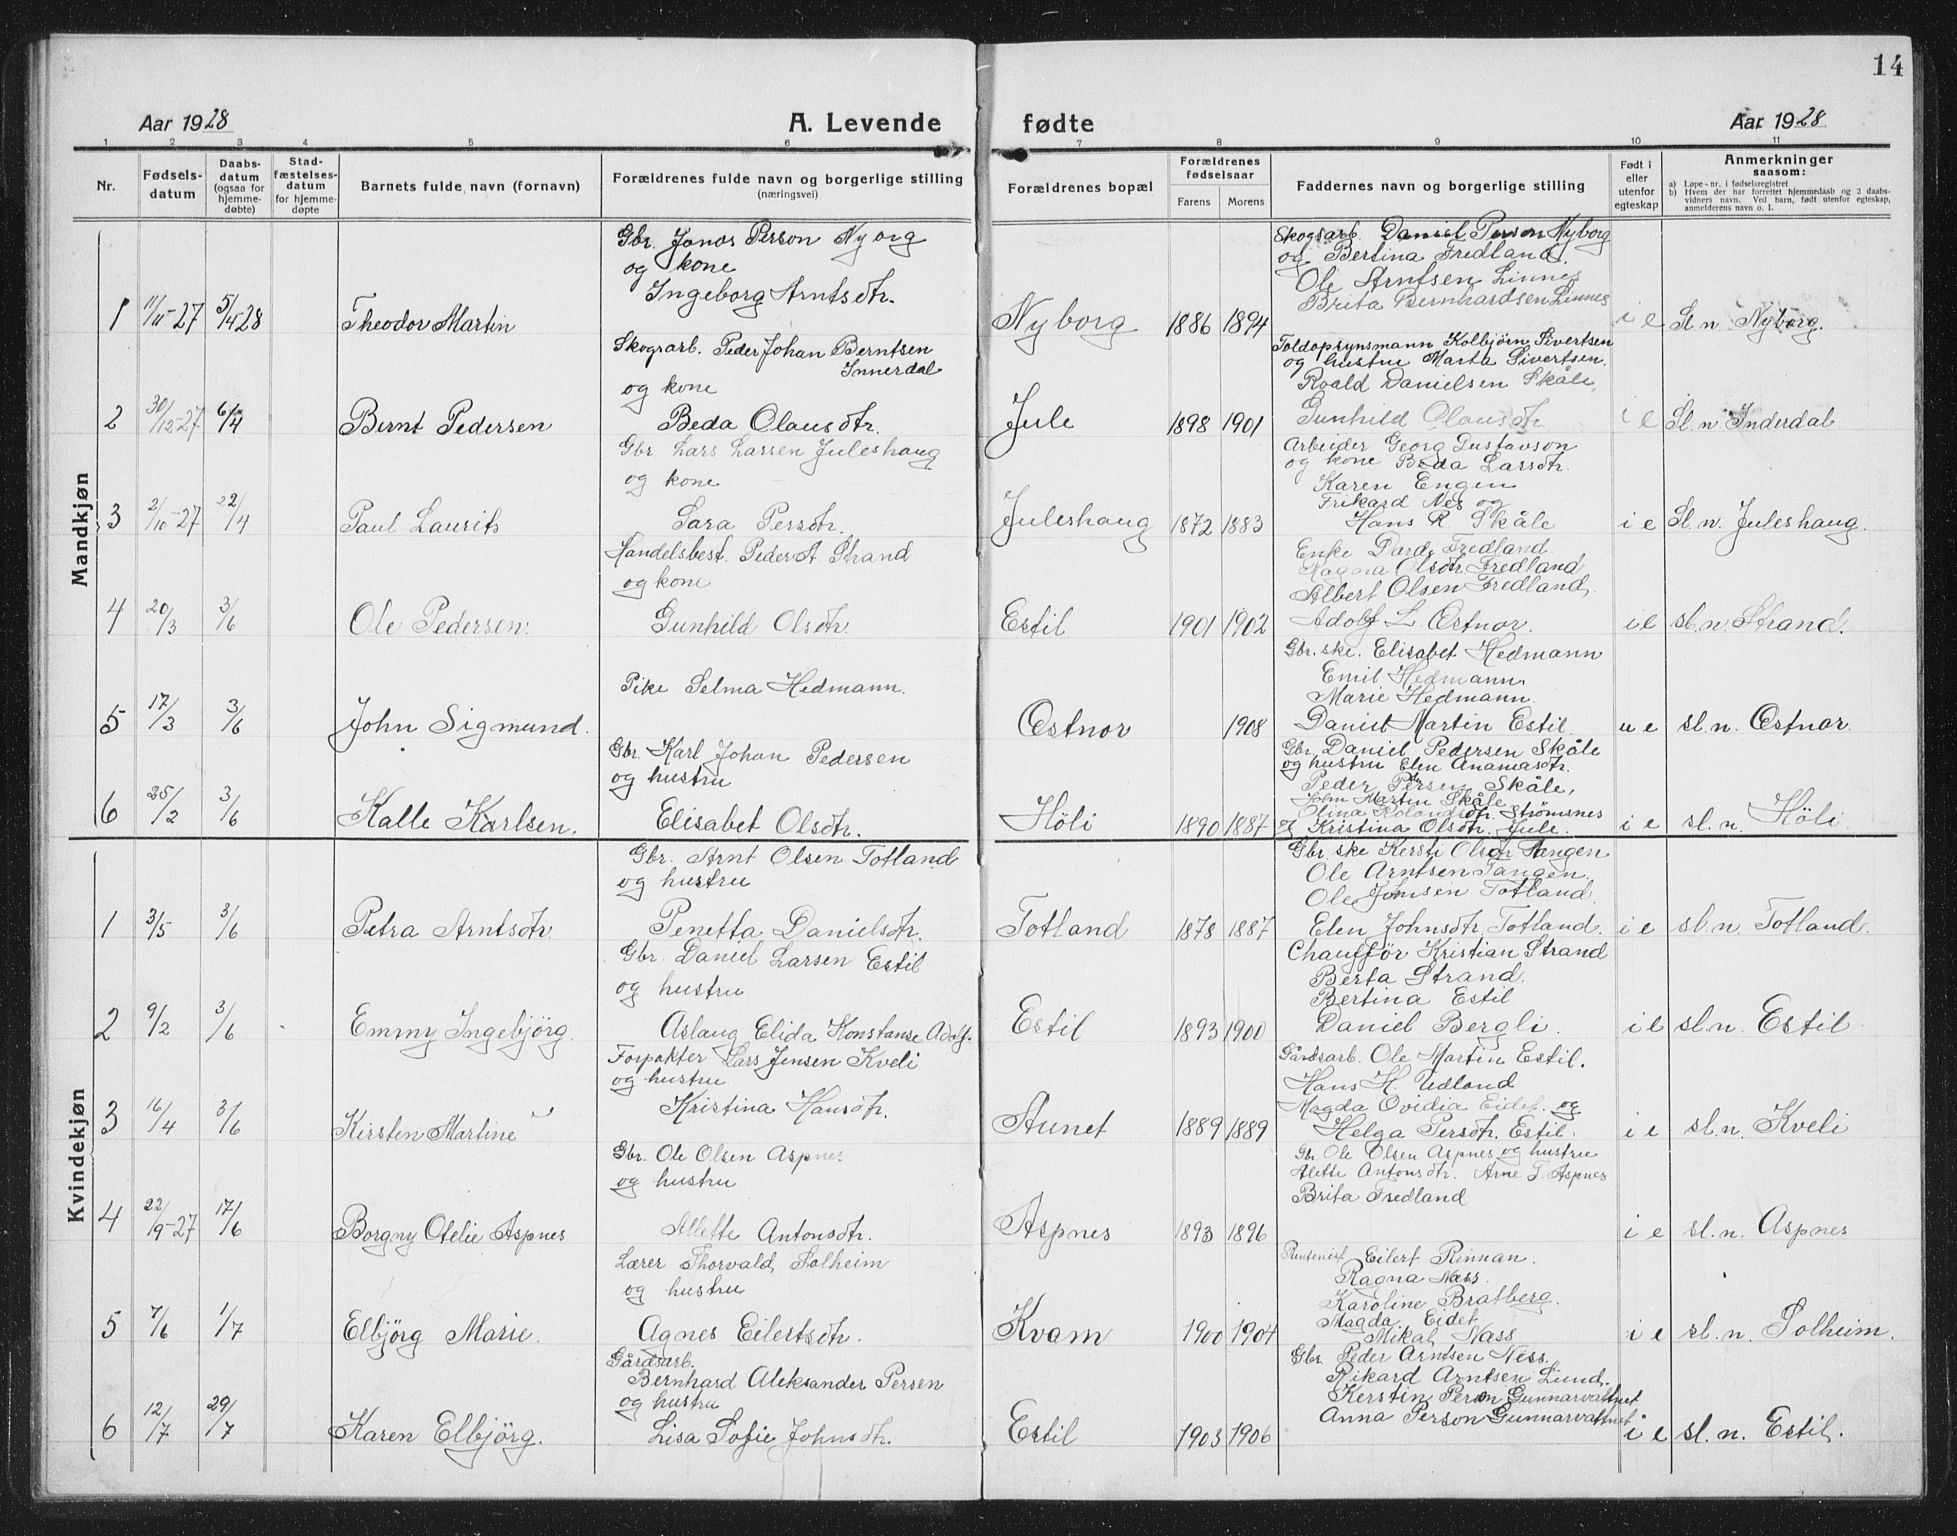 14
Aar 1928
A. Levende fødte
Aar 1928
1 2 3 4 5 6 7 8 9 10 11
Nr.
Fødsels-
datum
Daabs-
datum
(ogsaa for
hjemme-
døbte)
Stad-
fæstelses-
datum
for hjemme-
døpte
Barnets fulde navn (fornavn)
Forældrenes fulde navn og borgerlige stilling
(næringsvei)
Forældrenes bopæl
Forældrenes
fødselsaar
Farens Morens
Faddernes navn og borgerlige stilling
Født i
eller
utenfor
egteskap
Anmerkninger
saasom:
a) Løpe-nr. i fødselsregistret
b) Hvem der har forrettet hjemmedaab og 2 daabs-
vidners navn. Ved barn, født utenfor egteskap,
anmelderens navn o. l.
Mandkjøn
Gbr. Jonas Person Nyborg
og kone
Ingeborg Arntsdtr.
Skogsarb. Daniel Person Nyborg
og Bertina Fredland.
Ole Arntsen Linnes
Brita Bernhardsen Linnes
1 11/11-27 5/4 28 Theodor Martin Nyborg 1886 1894 i e Sl. n Nyborg.
Skogsarb. Peder Johan Berntsen
Innerdal
og kone
Toldopsynsmann Kolbjørn Sivertsen
og hustru Marta Sivertsen.
Roald Danielsen Skåle,
2 30/12-27 6/4 Bernt Pedersen Beda Olausdtr. Jule 1898 1901 Gunhild Olausdtr. i e Sl. n Inderdal
Gbr Lars Larsen Juleshaug
og kone
Arbeider Georg Gustavson
og kone Beda Larsdtr.
Karen Engen
Frikard Nes og
3 2/10-27 22/4 Paul Laurits Sara Persdtr. Juleshaug 1872 1883 Hans R. Skåle i e Sl. n. Juleshaug.
Handelsbest. Peder A. Strand
og kone
Enke Dard. Fredland
Magna Olsdtr Fredland
Albert Olsen Fredland.
4 20/3 3/6 Ole Pedersen. Gunhild Olsdtr. Estil 1901 1902 Adolf L. Østnor. i e sl. n. Strand.
Pike Selma Hedmann.
Gbr.ske. Elisabet Hedmann
Emil Hedmann,
Marie Hedmann.
5 17/3 3/6 John Sigmund. Østnor 1908 Daniel Martin Estil u e sl. n. Østnor.
Gbr. Karl Johan Pedersen
og hustru
Gbr. Daniel Pedersen Skåle
og hustru Elen Ananiasdtr.
Peder Persen Skåle,
John Martin Skåle
Olina Rolandsdtr. Strømsnes
6 25/2 3/6 Kalle Karlsen. Elisabet Olsdtr. Höli 1890 1887 og Kristina Olsdtr. Jule. i e sl. n. Höli
Kvindekjøn
Gbr. Arnt Olsen Totland
og hustru
Gbr.ske Kersti Olsdtr Tangen
Ole Arntsen Tangen.
Ole Johnsen Totland.
1 3/5 3/6 Petra Arntsdtr Penetta Danielsdtr. Totland 1878 1887 Elen Johnsdtr. Totland. i e sl. n. Totland.
Gbr. Daniel Larsen Estil
og hustru
Chauffør Kristian Strand
Berta Strand.
Bertina Estil
2 9/2 3/6 Emmy Ingebjörg. Aslaug Elida Konstanse Adolf. Estil 1893 1900 Daniel Bergli. i e sl. n. Estil
Forpakter Lars Jensen Kveli
og hustru
Gårdsarb. Ole Martin Estil.
Hans H. Udland
Magda Ovidia Eidet. og
3 16/4 3/6 Kirsten Martine Kristina Hansdtr. Aunet 1889 1889 Helga Persdtr. Estil. i e sl. n. Kveli
Gbr. Ole Olsen Aspnes
og hustru
Gbr Ole Olsen Aspnes og hustru
Alette Antonsdtr. Arne T. Aspnes
Brita Fredland
4 22/9-27 17/6 Borgny Otelie Aspnes Allette Antonsdtr. Aspnes 1893 1896 i e sl. n. Aspnes
Lærer Thorvald Solheim
og hustru
Eilert Rinnan.
Ragna Næss.
Karoline Bratberg.
Magda Eidet
5 7/6 1/7 Elbjörg Marie. Agnes Eilertsdtr. Kvam 1900 1904 Mikal Næss i e sl. n. Solheim.
Gårdsarb.
Bernhard Aleksander Persen
og hustru
Gbr. Peder Arntsen Ness.
Rikard Arntsen Lund.
Kerstin Person Gunnarvattnet
Anna Person Gunnarvattnet
6 12/7 29/7 Karen Elbjörg. Lisa Sofie Johnsdtr. Estil 1903 1906 i e sl. n. Estil.